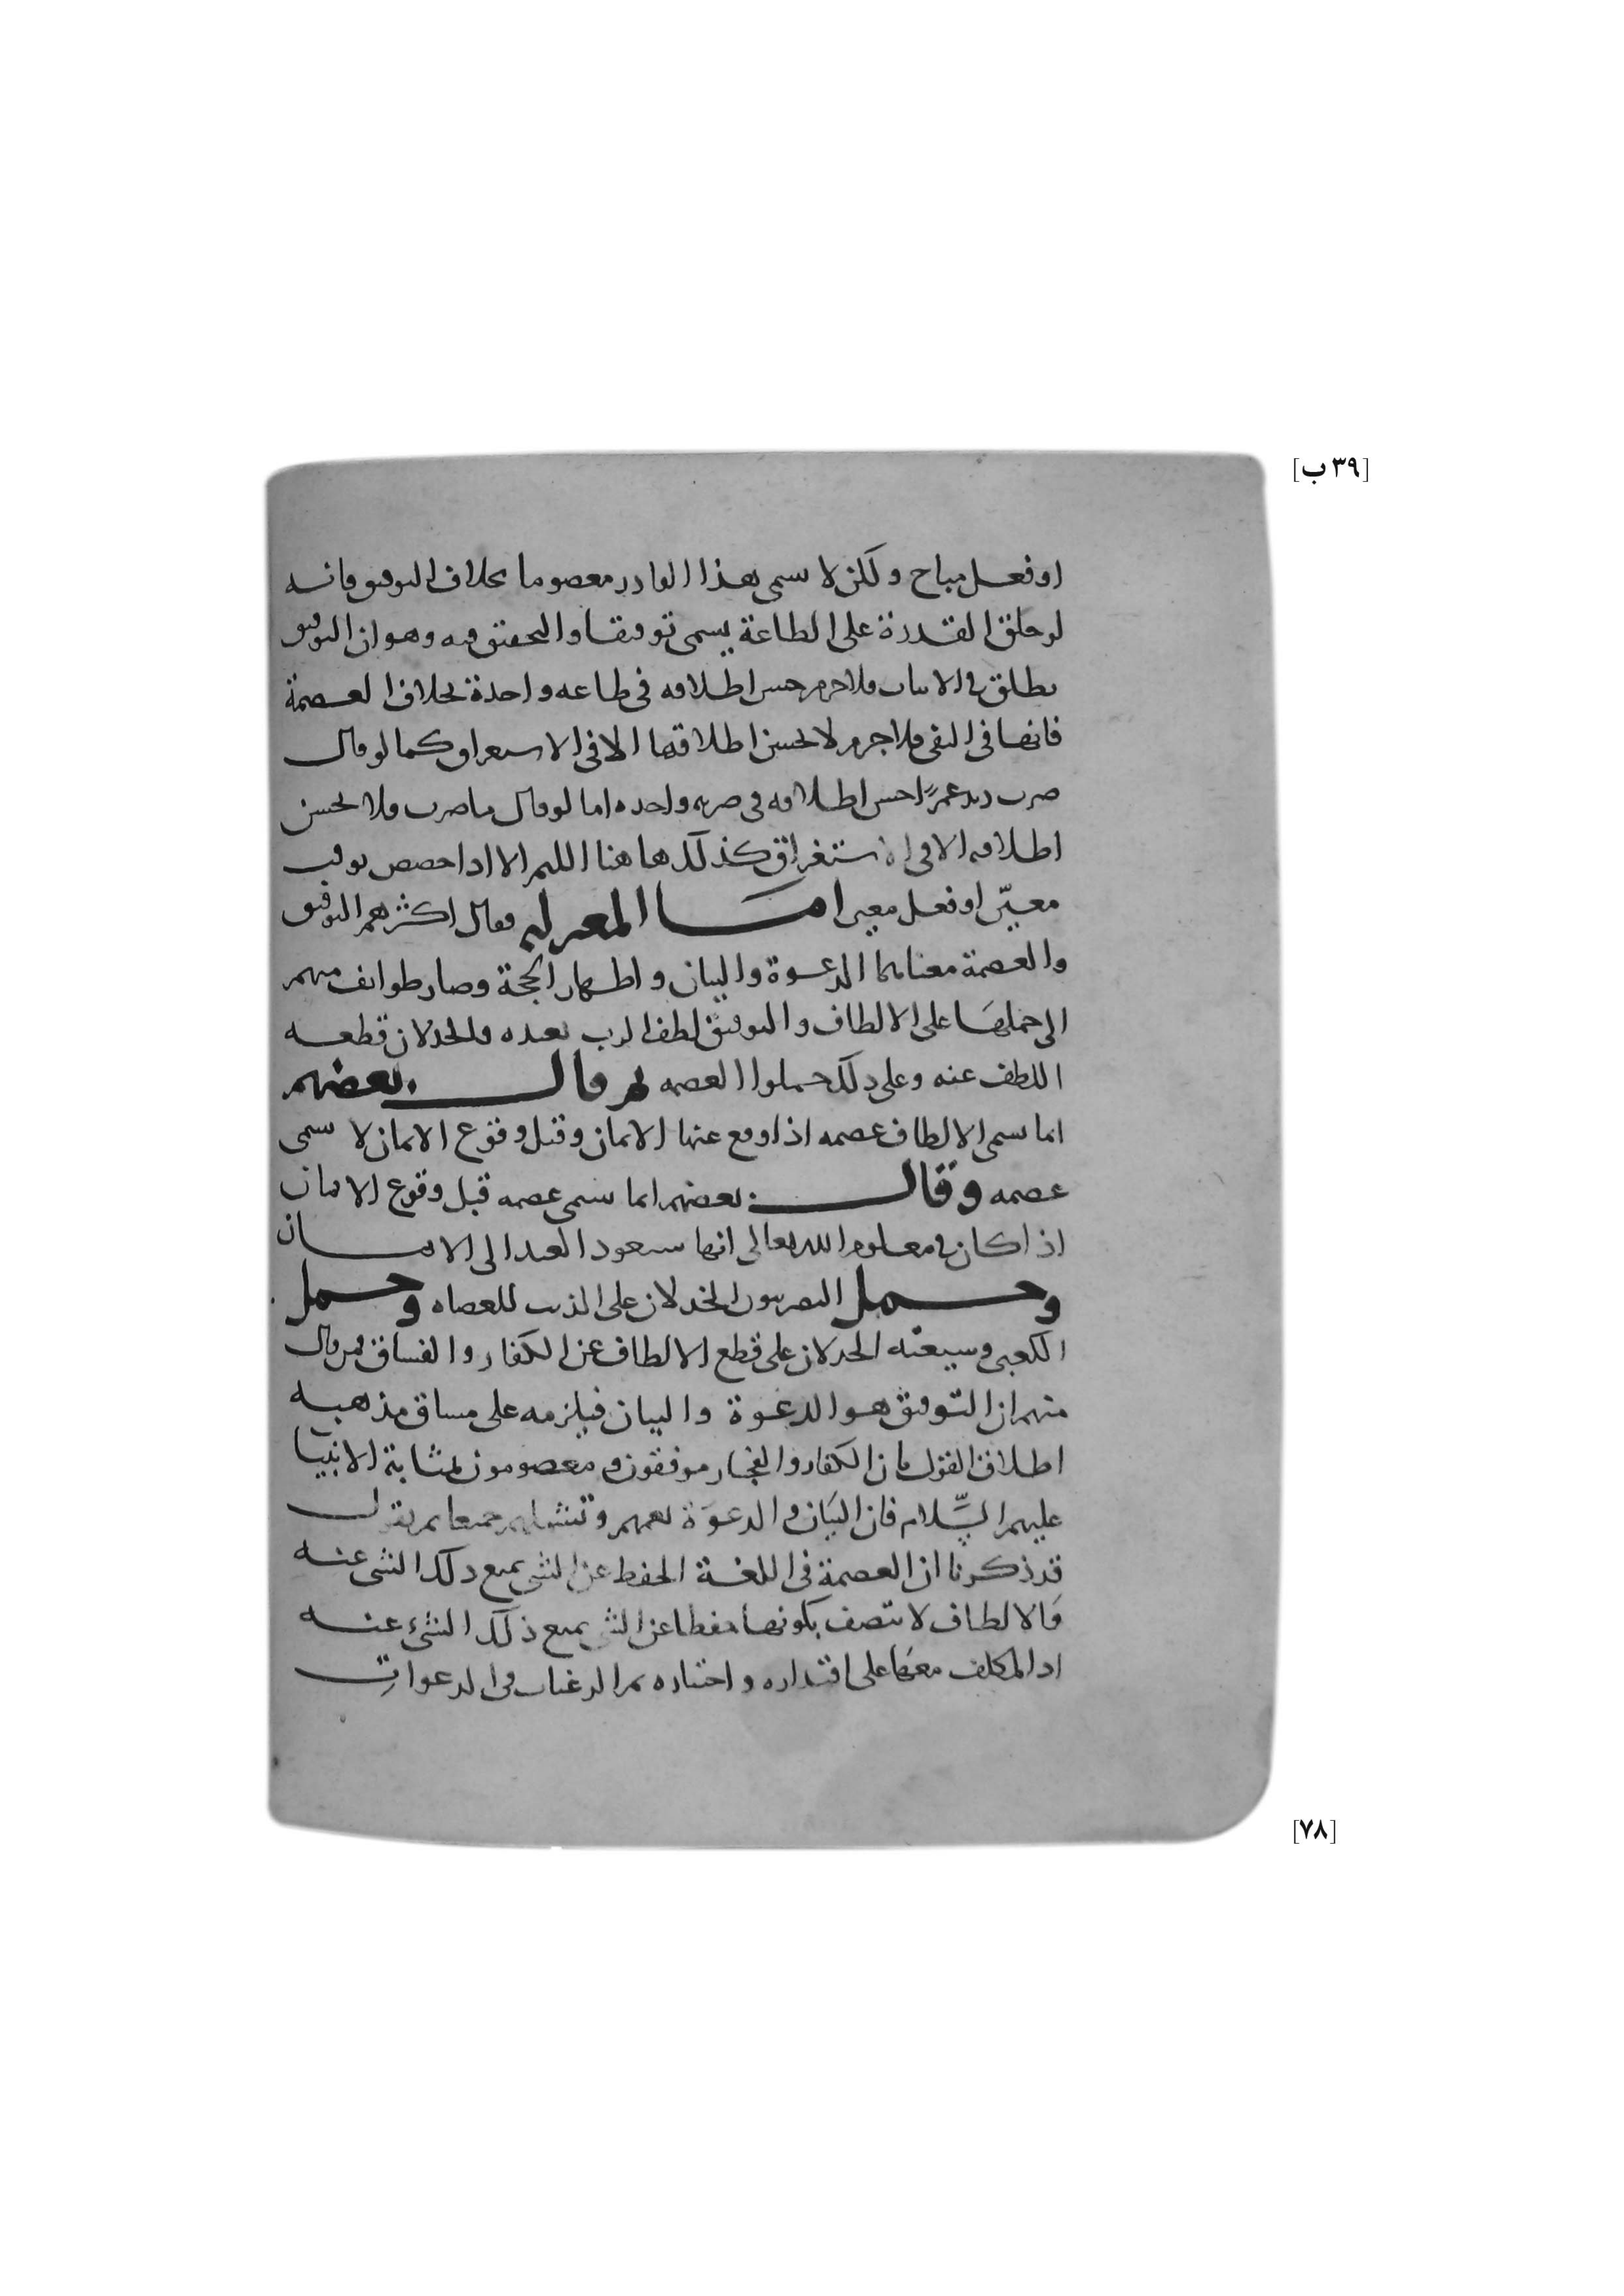 [٣٩ ب]
او فعل مباح ولكن لا يسمى بهذا القادر معصوما بخلاف التوفيق فانه
لو خلق القدرة على الطاعة يسمى توفيقا والتحقيق فيه وهو ان التوفيق
يطلق في الاثبات فلا جرم حسن اطلاقه في طاعه واحدة بخلاف العصمة
فانها في النفي فلا جرم لا يحسن اطلاقها الا في الاستغراق كما لو قال
ضرب زيد عمرًا حسن اطلاقه في ضربه واحده اما لو قال ما ضرب فلا يحسن
اطلاقه الا في الاستغراق كذلك هاهنا اللهم الا اذا خصص بوقت
معيّن او فعل معين امَّا المعتزله فقال اكثرهم التوفيق
والعصمة معناهما الدعوة والبيان واظهار الحجة وصار طوائف منهم
الى حملهَا على الالطاف والتوفيق لطف الرب بعبده والخذلان قطعه
اللطف عنه وعلى ذلك حملوا العصمه ثم قال بعضهم
انما يسمى الالطاف عصمه اذا وقع عنها الايمان وقبل وقوع الايمان لا يسمى
عصمه وقال بعضهم انما يسمى عصمه قبل وقوع الايمان
اذا كان في معلوم الله تعالى انها ستعود العبد الى الايمان
وحمل البصريون الخذلان على الذنب للعصاه وحمل
الكعبي وشيعته الخذلان على قطع الالطاف عن الكفار والفساق فمن قال
منهم ان التوفيق هو الدعوة والبيان فيلزمه على مساق مذهبه
اطلاق القول بان الكفار والفجار موفقون ومعصومون بمثابة الانبيا
عليهم السّلام فان البيَان والدعوَة تعمهم وتشملهم جميعا ثم يقول
قد ذكرنا ان العصمة في اللغة الحفظ عن الشي بمنع ذلك الشي عنه
وَالالطاف لا تتصف بكونها حفظا عن الشي بمنع ذلك الشيء عنه
اذ المكلف معهَا على اقتداره واختياره ثم الرغبات في الدعوات
[٧٨]